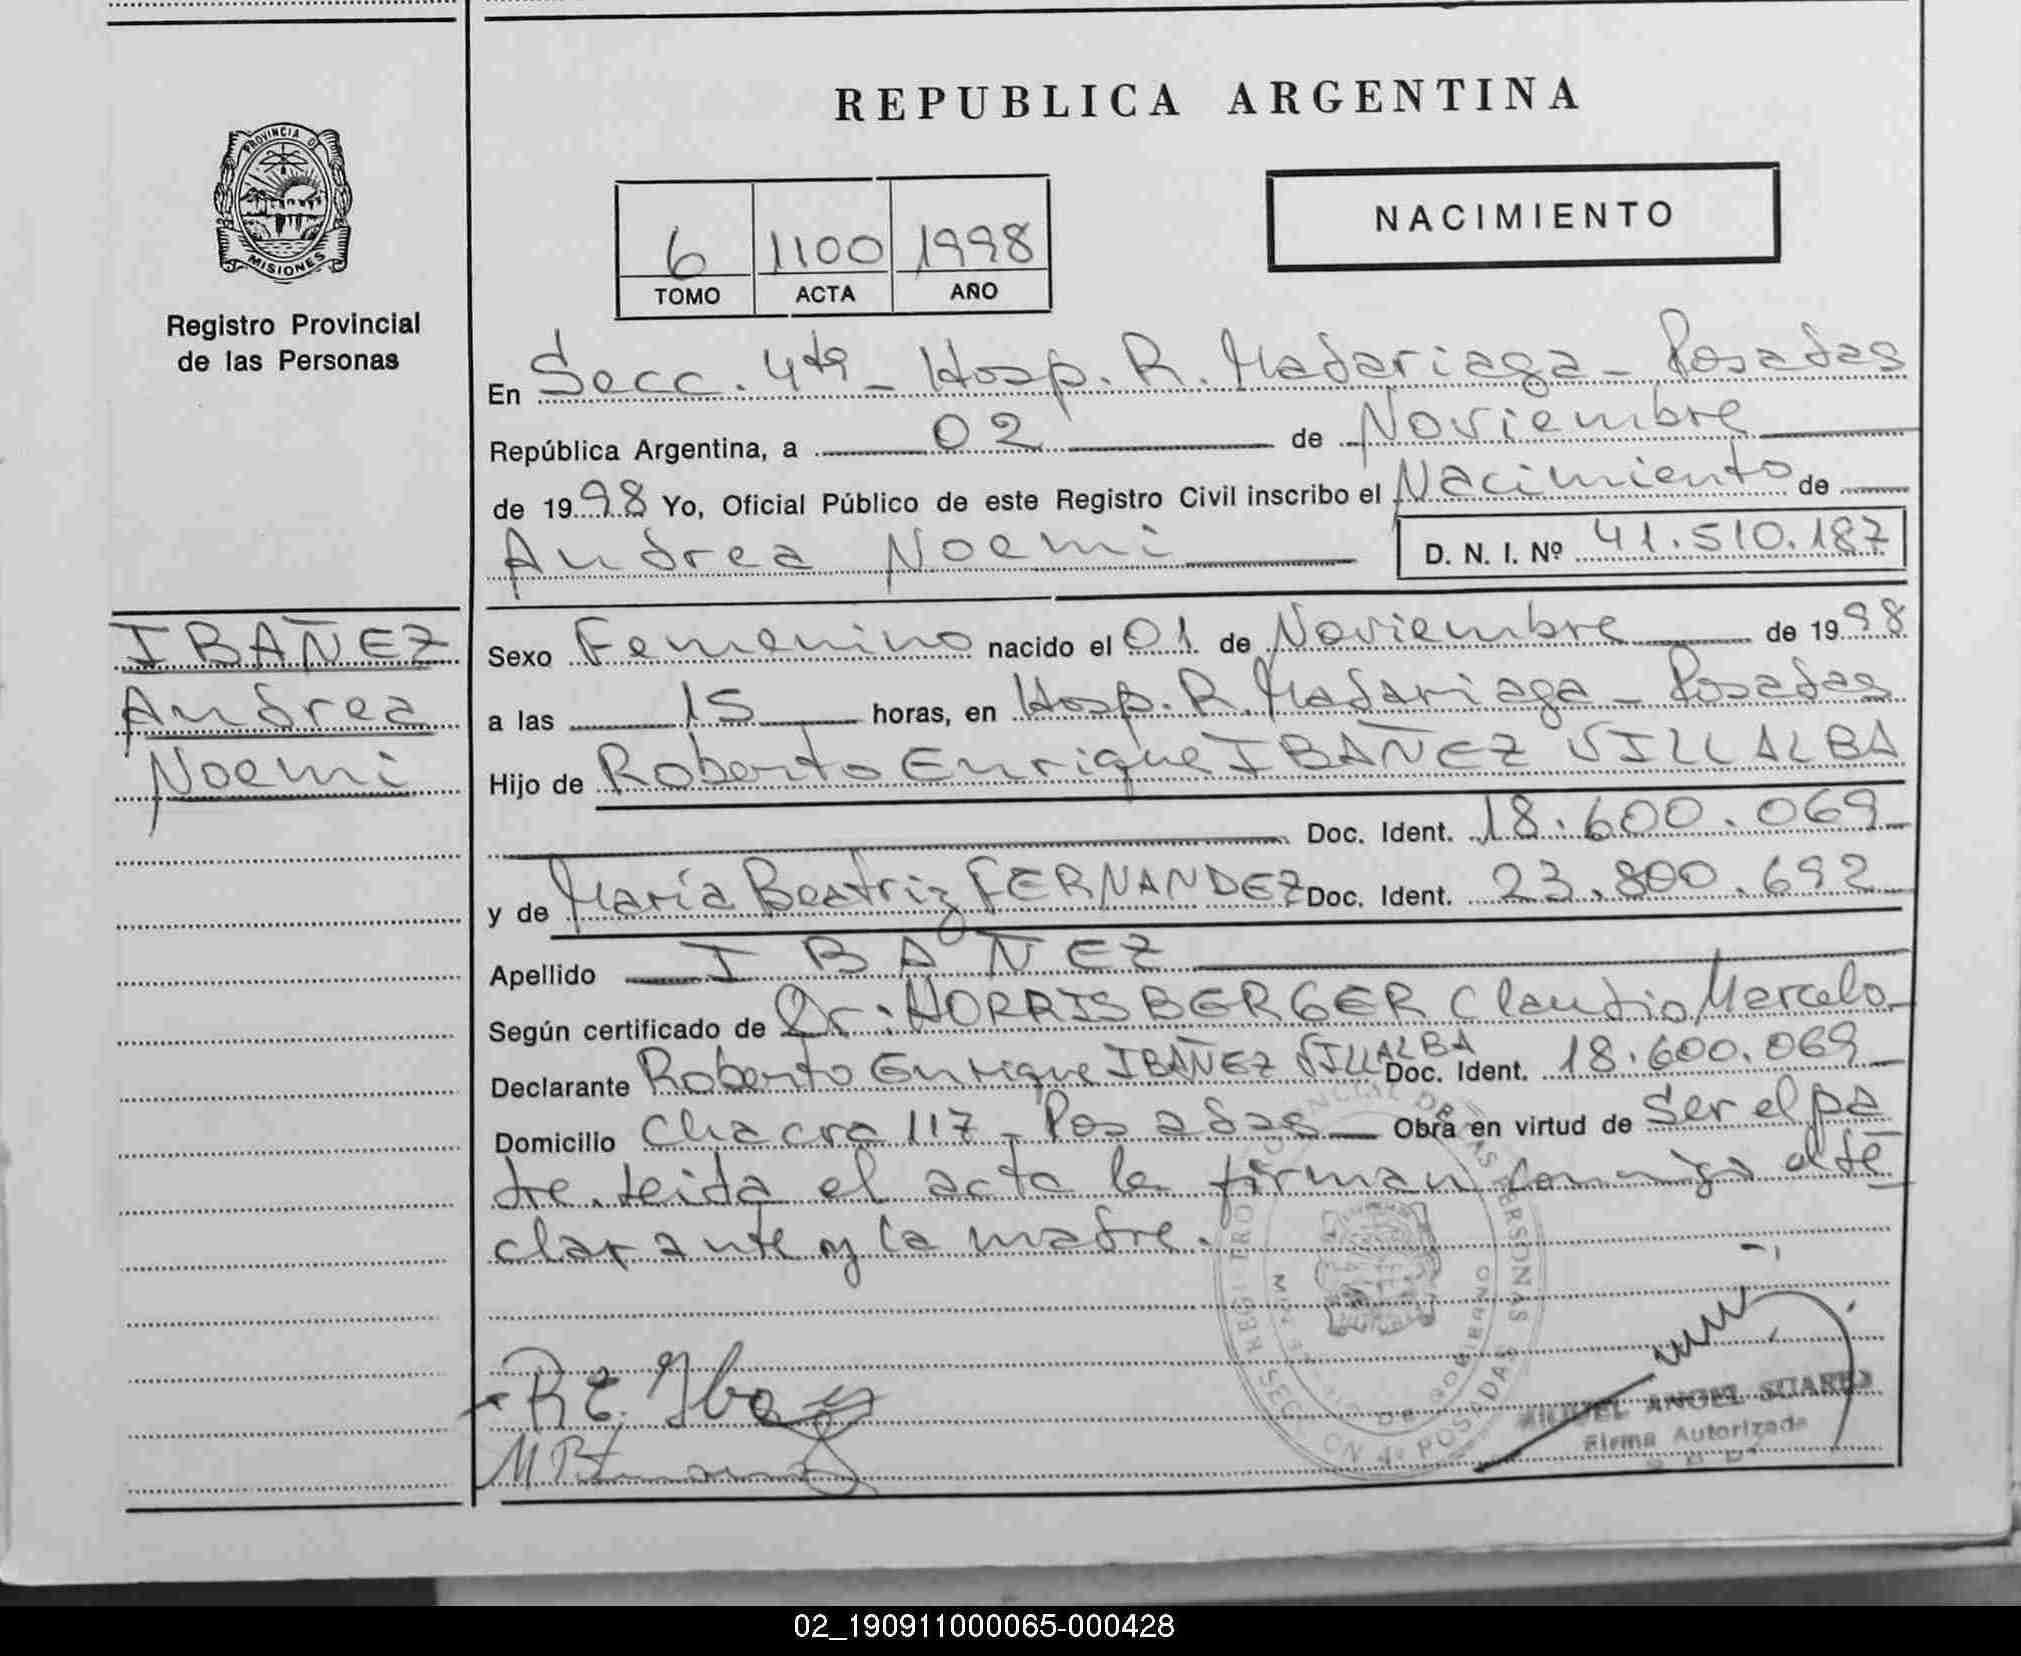 REPUBLICA ARGENTINA
PROVINCIA DE
MISIONES
Registro Provincial
de las Personas
6 1100 1998
TOMO ACTA AÑO
NACIMIENTO
En Secc. 4ta - Hosp. R. Madariaga - Posadas
República Argentina, a 02 de Noviembre
de 1998 Yo, Oficial Público de este Registro Civil inscribo el Nacimiento de
Andrea Noemi D. N. I. Nº 41.510.187
IBAÑEZ
Andrea
Noemi
Sexo Femenino nacido el 01 de Noviembre de 1998
a las 15 horas, en Hosp. R. Madariaga - Posadas
Hijo de Roberto Enrique IBAÑEZ VILLALBA
Doc. Ident. 18.600.069
y de María Beatriz FERNANDEZ Doc. Ident. 23.800.692
Apellido IBAÑEZ
Según certificado de Dr. NORRISBERGER Claudio Marcelo
Declarante Roberto Enrique IBAÑEZ VILLALBA Doc. Ident. 18.600.069
Domicilio Chacra 117 - Posadas Obra en virtud de ser el pa
dre. leida el acta la firman conmigo el de
clarante y la madre.
R E. Ibañez
MIGUEL ANGEL SUAREZ
Firma Autorizada
02_190911000065-000428